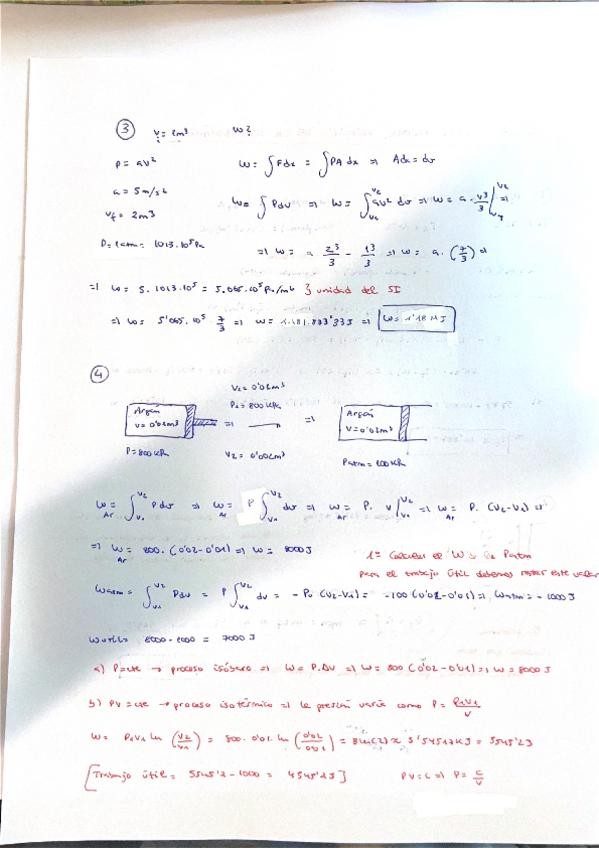 ③ V = 2m³ W?
P = aV² W = ∫Fdx = ∫PA dx ⇒ Adx = dv
a = 5m/s² W = ∫Pdv ⇒ W = ∫_{V1}^{V2} aV² dv ⇒ W = a · V³/3 |_{V1}^{V2} ⇒
Vf = 2m³
P = 1atm = 1013·10⁵Pa ⇒ W = a 2³/3 - 1³/3 ⇒ W = a · (7/3) ⇒
⇒ W = 5·1013·10⁵ = 5.065·10⁵ Pa/m⁶ } unidad del SI
⇒ W = 5'065·10⁵ · 7/3 ⇒ W = 1.181.833'33J ⇒ W = 1'18 MJ
④
V1 = 0'01m³
P1 = 800 KPa
Argón V = 0'01m³ ⇒ ⇒ Argón V = 0'02m³
P = 800 KPa V2 = 0'02m³ Patm = 100KPa
W_Ar = ∫_{V1}^{V2} Pdv ⇒ W_Ar = P ∫_{V1}^{V2} dv ⇒ W_Ar = P · V |_{V1}^{V2} ⇒ W_Ar = P · (V2-V1) ⇒
⇒ W_Ar = 800 · (0'02-0'01) ⇒ W = 8000J 1º Calcular el W de la Patm
Para el trabajo útil debemos restar este valor
Watm = ∫_{V1}^{V2} Pdv = P ∫_{V1}^{V2} dv = -P0 (V2-V1) = -100 (0'02-0'01) ⇒ Watm = -1000J
Wutil = 8000-1000 = 7000J
a) P=cte → proceso isóbaro ⇒ W = P·ΔV ⇒ W = 800 (0'02-0'01) ⇒ W = 8000J
b) PV = cte → proceso isotérmico ⇒ la presión varía como P = P1V1/V
W = P1V1 ln (V2/V1) = 800·0'01·ln (0'02/0'01) = 8 ln(2) ≈ 5'54517KJ = 5545'2J
[Trabajo útil = 5545'2-1000 = 4545'2J] PV=C ⇒ P = C/V